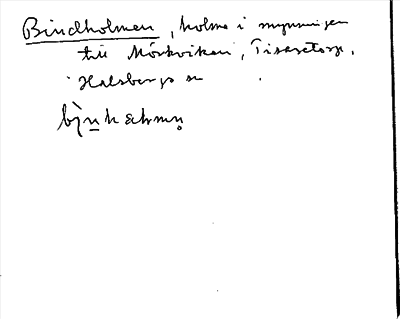 Bindholmen, holme i mynningen
till Mörkviken, Tisarstorp,
Halsbergs sn